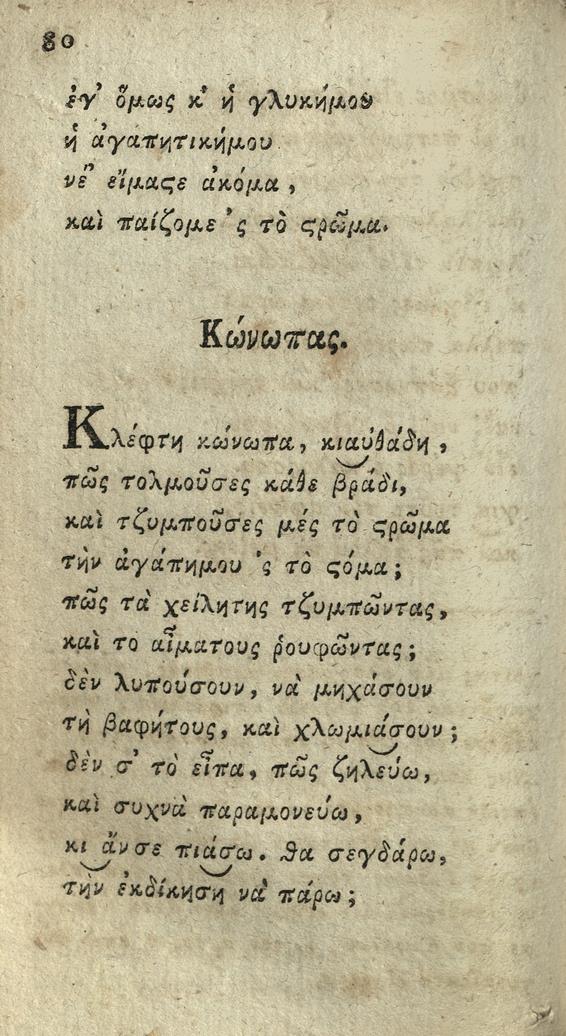 80
ἐγ' ὅμως κ' ἡ γλυκήμου
ἡ ἀγαπητικήμου
νἒ εἴμαϛε ἀκόμα,
καὶ παίζομε 'ς τὸ ϛρῶμα.
Κώνωπας.
Κλέφτη κώνωπα, κι‿αὐθάδη,
πῶς τολμοῦσες κάθε βράδι,
καὶ τζυμποῦσες μές τὸ ϛρῶμα
τὴν ἀγάπημου 'ς τὸ ϛόμα;
πῶς τὰ χείλητης τζυμπῶντας,
καὶ το αἷματους ῥουφῶντας;
δὲν λυπούσουν, νὰ μηχάσουν
τὴ βαφήτους, καὶ χλωμι‿άσουν;
δὲν σ' τὸ εἶπα, πῶς ζηλεύω,
καὶ συχνὰ παραμονεύω,
κι‿ ἄνσε πι‿άσω. θα σεγδάρω,
τὴν ἐκδίκηση νὰ πάρω;